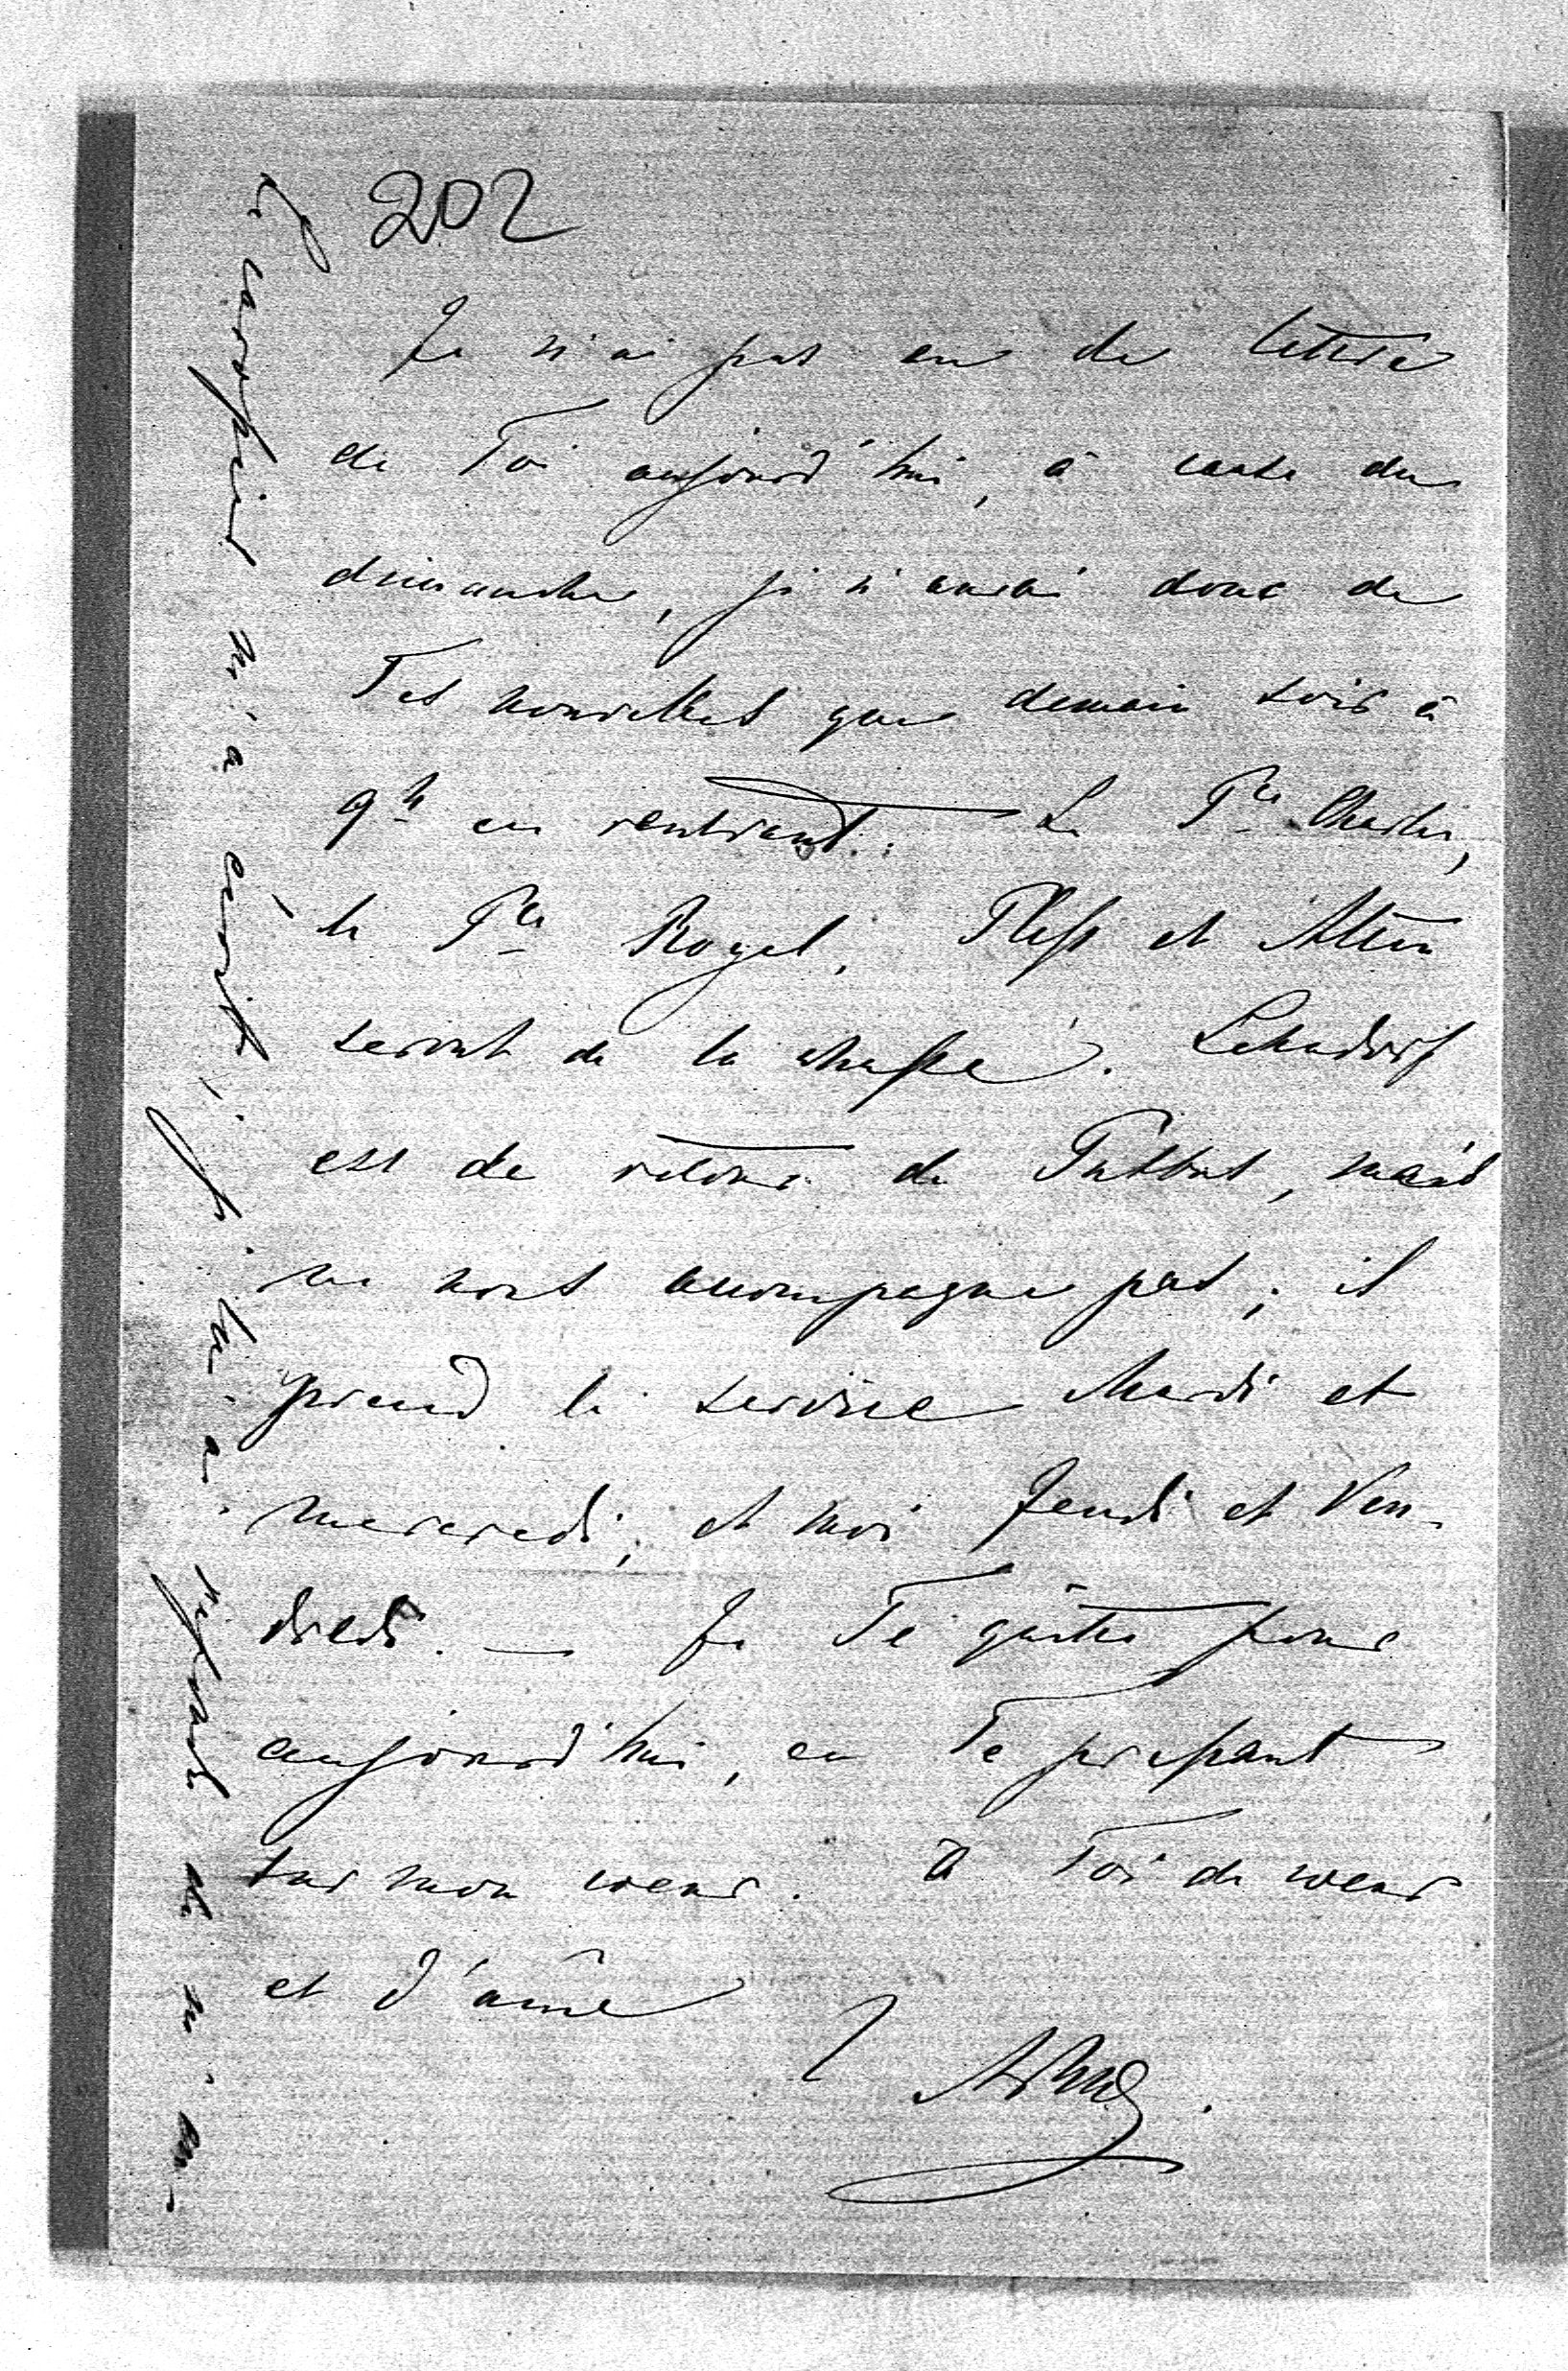 202
Je n'ai pas eu de lettre
de Toi aujourd'hui, à cause du
dimanche, je n'aurai donc de
Tes nouvelles que demain soir à
9h en rentrant. — Le Pce Charles,
le Pce Royal, Pless et Alten
seront de la chasse. Lehndorf
est de retour de Putbus, mais
ne nous accompagne pas; il
prend le service Mardi et
mercredi, et moi Jeudi et Ven-
dredi. — Je Te quitte pour
aujourd'hui, en Te pressant
sur mon coeur. A Toi de coeur
et d'âme
m'a écrit, je lui ai répondu